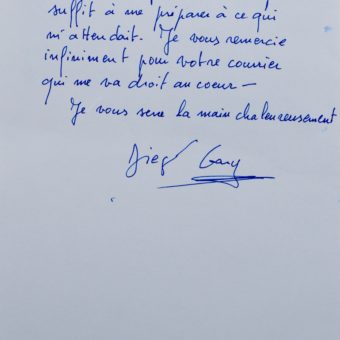 suffit à me préparer à ce qui
m'attendait. Je vous remercie
infiniment pour votre courrier
qui me va droit au coeur —
Je vous serre la main chaleureusement
Diego Gary